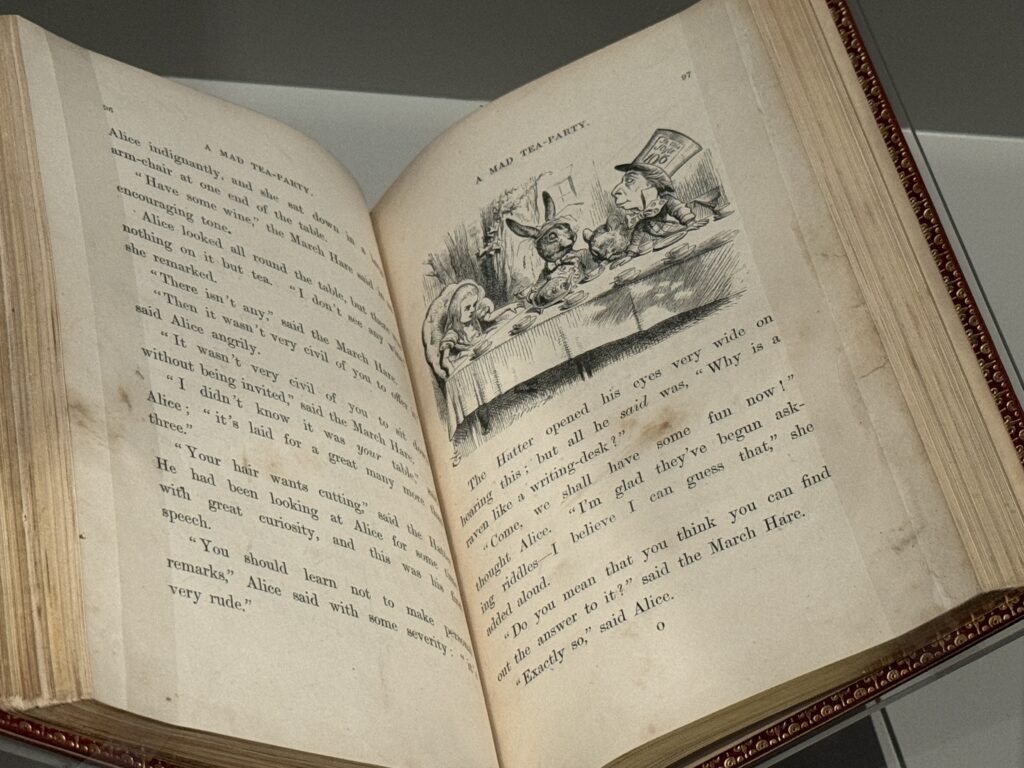 96
A MAD TEA-PARTY.
Alice indignantly, and she sat down in a
arm-chair at one end of the table.
"Have some wine," the March Hare said in
encouraging tone.
Alice looked all round the table, but there
nothing on it but tea. "I don't see any wine,"
she remarked.
"There isn't any," said the March Hare.
"Then it wasn't very civil of you to offer
said Alice angrily.
"It wasn't very civil of you to sit down
without being invited," said the March Hare.
"I didn't know it was your table," said
Alice; "it's laid for a great many more than
three."
"Your hair wants cutting," said the Hatter.
He had been looking at Alice for some time
with great curiosity, and this was his first
speech.
"You should learn not to make personal
remarks," Alice said with some severity: "it's
very rude."
97
A MAD TEA-PARTY.
In this
Style
10/6
The Hatter opened his eyes very wide on
hearing this; but all he said was, "Why is a
raven like a writing-desk?"
"Come, we shall have some fun now!"
thought Alice. "I'm glad they've begun ask-
ing riddles—I believe I can guess that," she
added aloud.
"Do you mean that you think you can find
out the answer to it?" said the March Hare.
"Exactly so," said Alice.
O